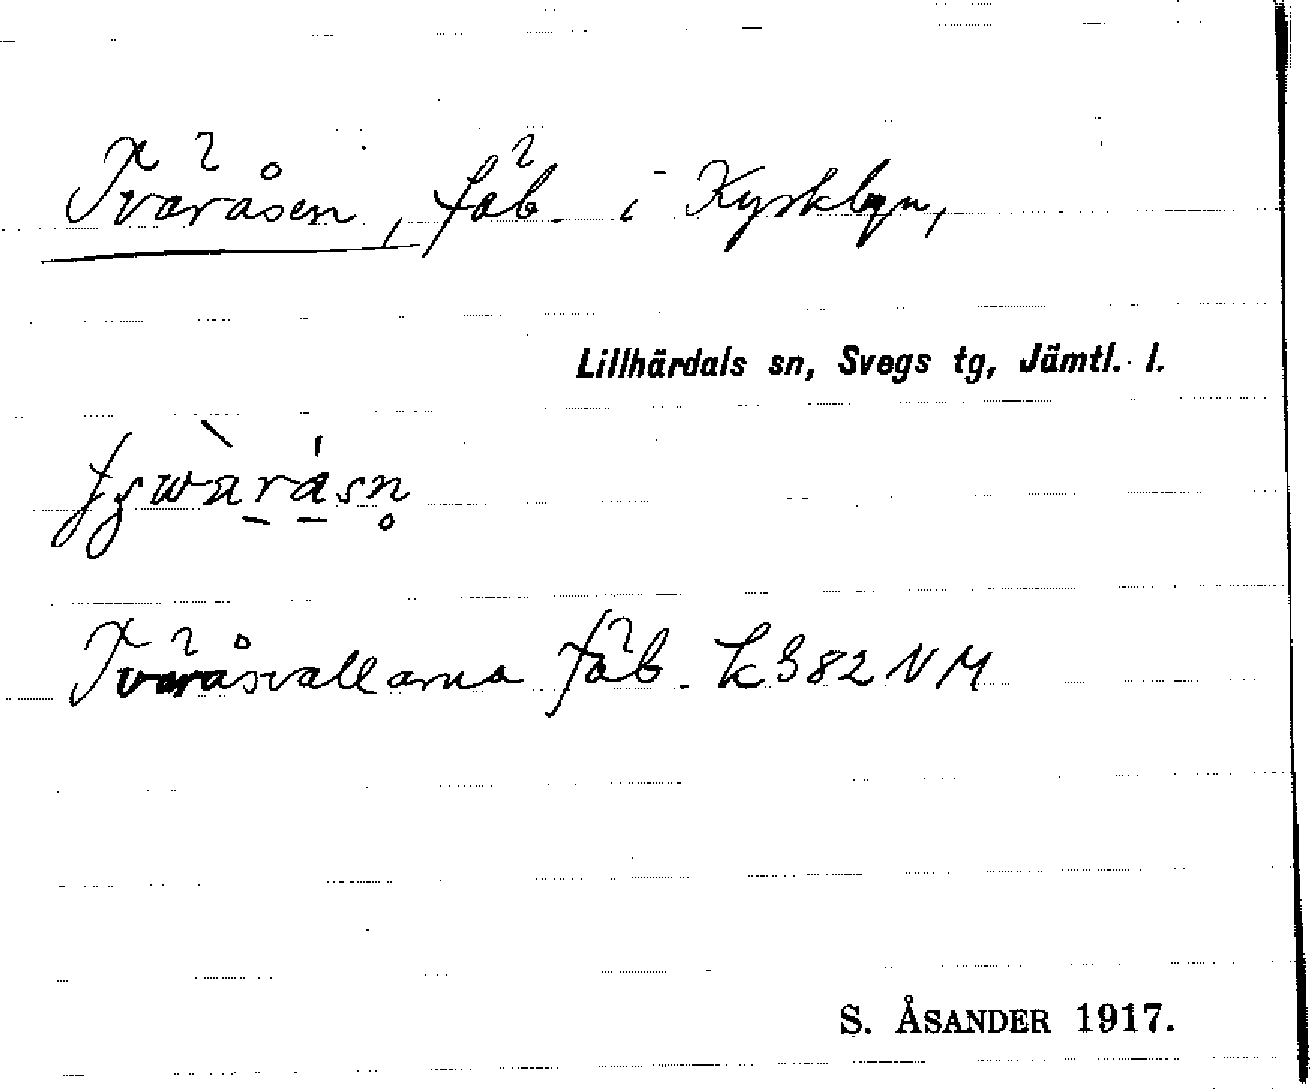 Tväråsen, fäb. i Kyrkbyn,
Lillhärdals sn, Svegs tg, Jämtl. l.
Tväråsvallarna fäb. k 382 NM
S. ÅSANDER 1917.